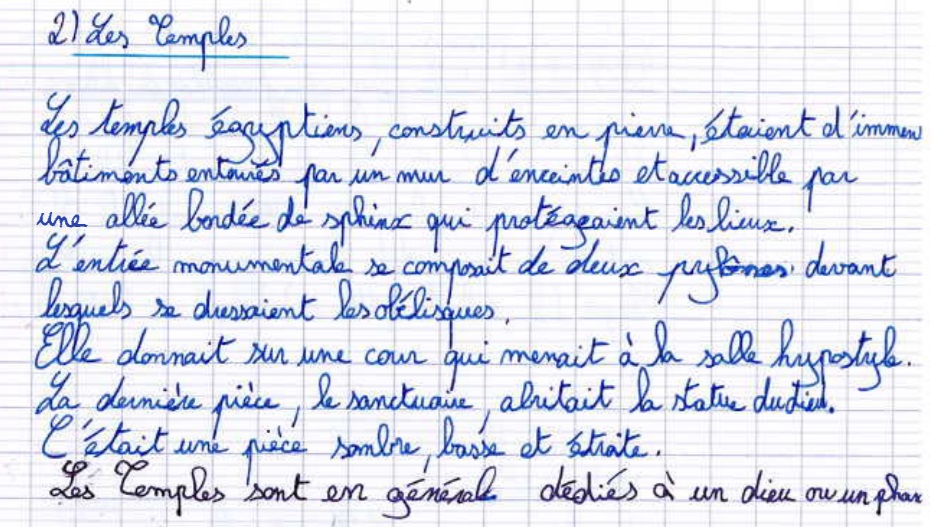 2) Les Temples
Les temples égyptiens, construits en pierre, étaient d'immen
bâtiments entourés par un mur d'enceintes et accessible par
une allée bordée de sphinx qui protégeaient les lieux.
L'entrée monumentale se composait de deux pylônes devant
lesquels se dressaient les obélisques.
Elle donnait sur une cour qui menait à la salle hypostyle.
La dernière pièce, le sanctuaire, abritait la statue du dieu.
C'était une pièce sombre, basse et étroite.
Les Temples sont en général dédiés à un dieu ou un phar